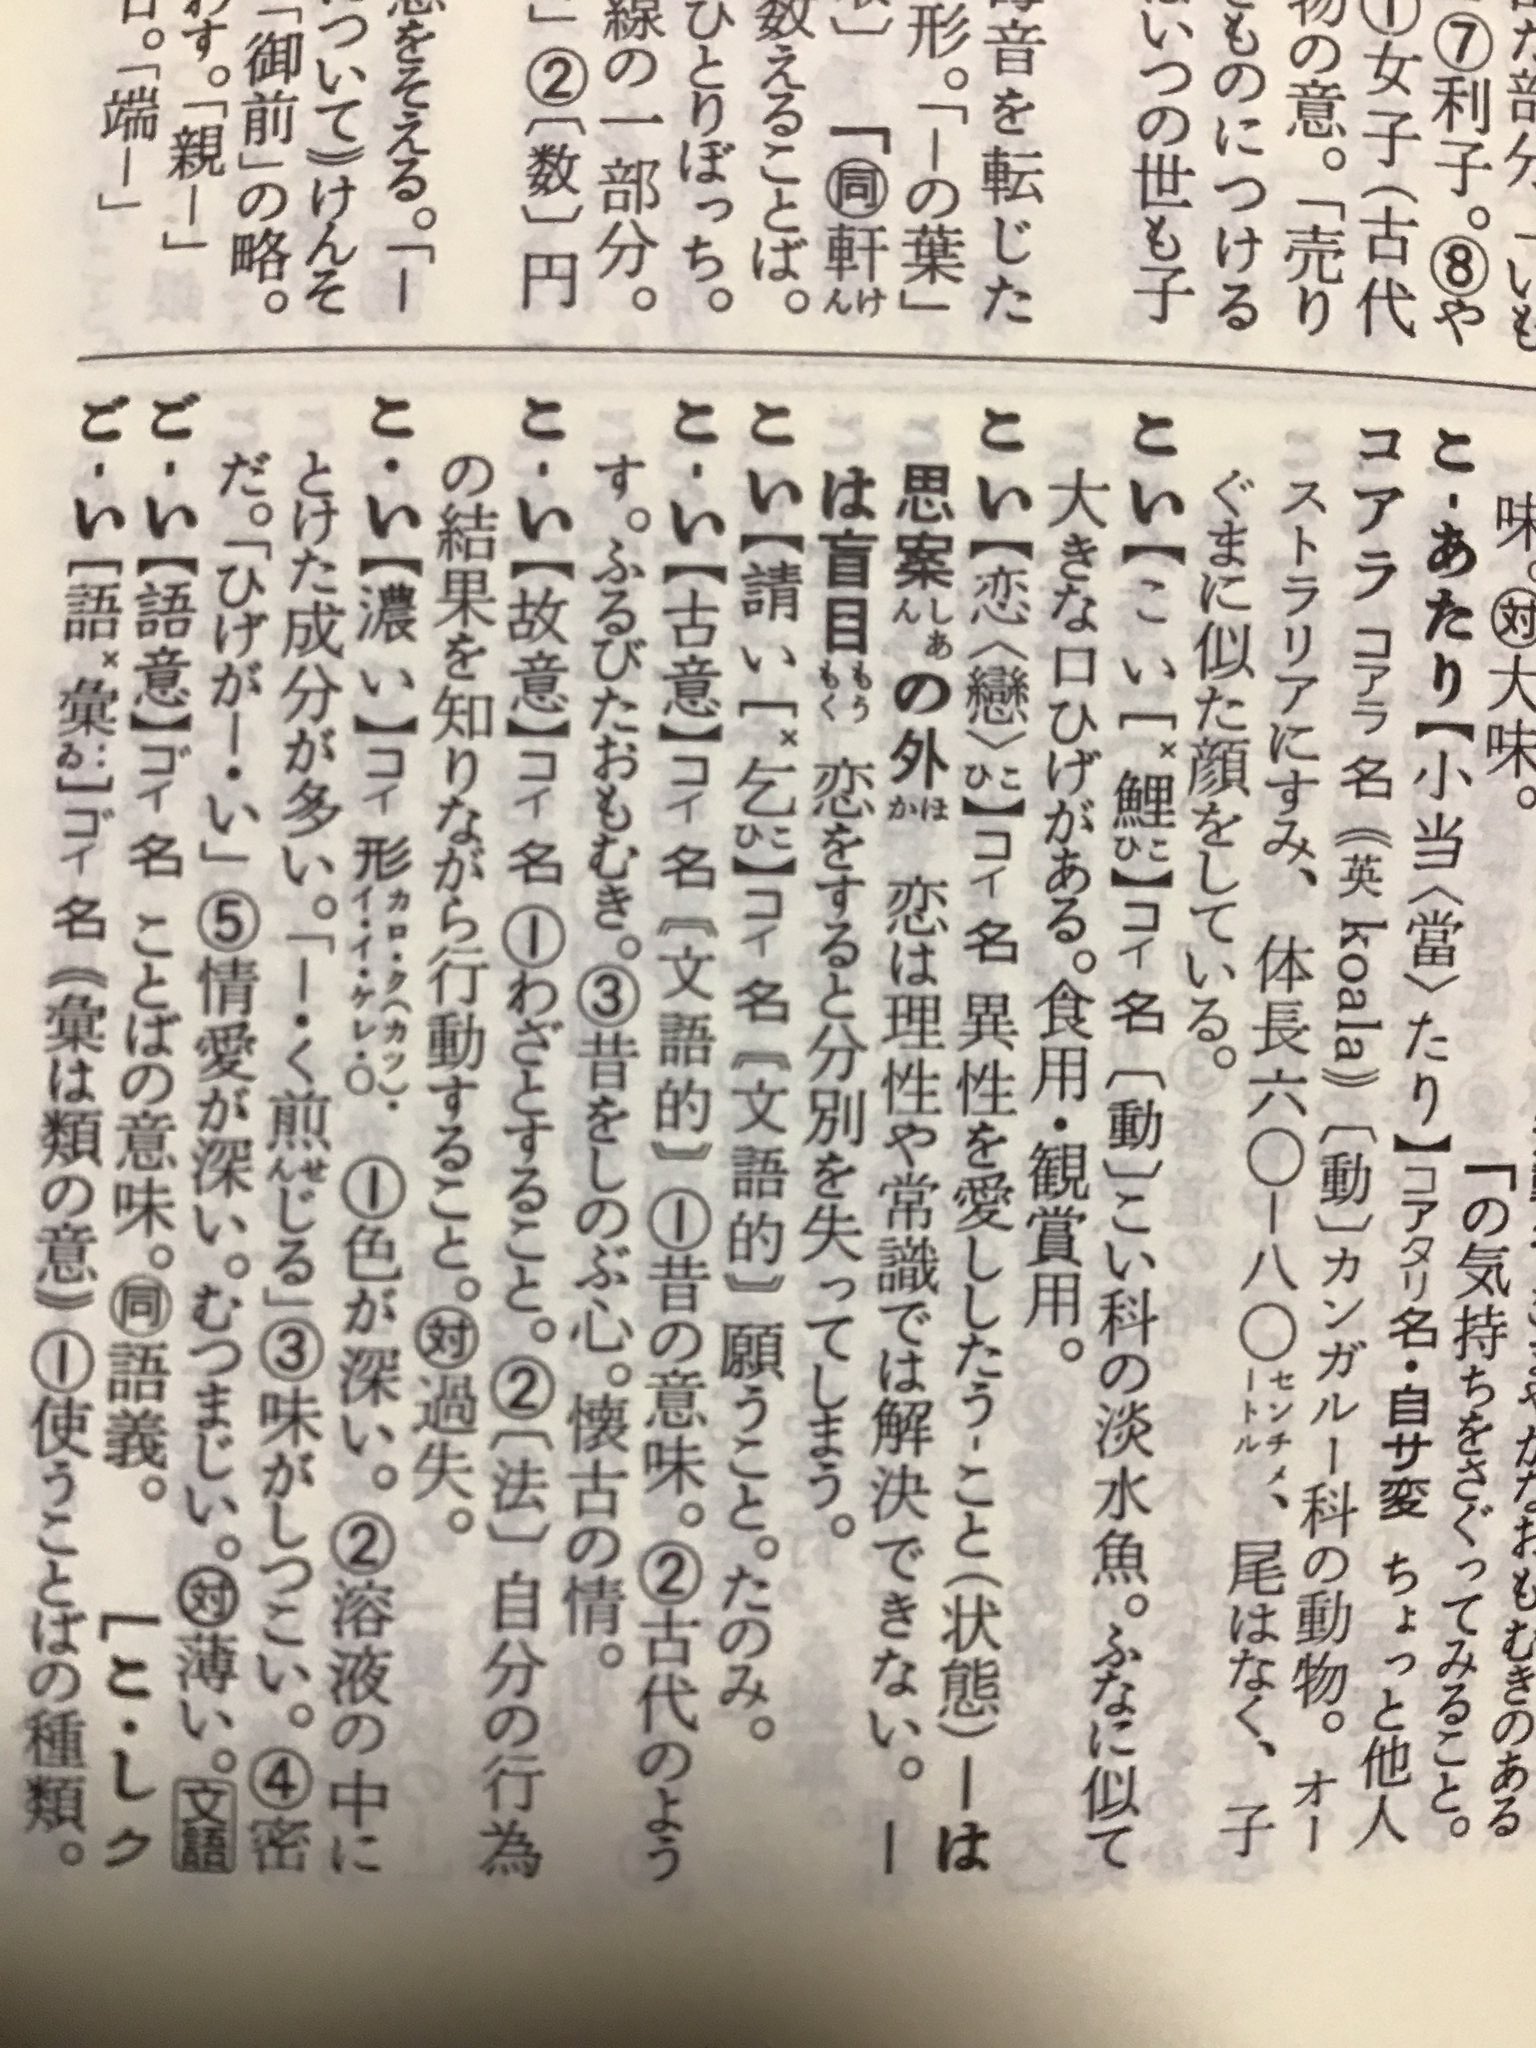 な部分。「いも
⑦利子。⑧や
①女子(古代
物の意。「売り
ものにつける
いつの世も子
母音を転じた
形。「ーの葉」
「㊂軒けん
数えることば。
ひとりぼっち。
線の一部分。
」②〔数〕円
意をそえる。「ー
について》けんそ
「御前」の略。
わす。「親ー」
「端ー」
味。㊉大味。
「の気持ちをさぐってみること。
こ‐あたり【小当〈當〉たり】コアタリ名・自サ変 ちょっと他人
コアラ コアラ 名《英 koala》〔動〕カンガルー科の動物。オー
ストラリアにすみ、体長六〇ー八〇センチメートル、尾はなく、子
ぐまに似た顔をしている。
こい【こい[×鯉こひ]】コィ 名〔動〕こい科の淡水魚。ふなに似て
大きな口ひげがある。食用・観賞用。
こい【恋〈戀〉こひ】コィ 名 異性を愛ししたう‐こと(状態)ーは
思案しあんの外ほか 恋は理性や常識では解決できない。ー
は盲目もうもく 恋をすると分別を失ってしまう。
こい【請い[×乞こひ]】コィ 名〘文語的〙願うこと。たのみ。
こ‐い【古意】コィ 名〘文語的〙①昔の意味。②古代のよう
す。ふるびたおもむき。③昔をしのぶ心。懐古の情。
こ‐い【故意】コィ 名 ①わざとすること。②〔法〕自分の行為
の結果を知りながら行動すること。対過失。
こ・い【濃い】コィ 形カロ・ク(カッ)・イ・イ・ケレ・○ ①色が深い。②溶液の中に
とけた成分が多い。「ー・く煎せんじる」③味がしつこい。④密
だ。「ひげがー・い」⑤情愛が深い。むつまじい。対薄い。文語
「こ・しク
ご‐い【語意】ゴィ 名 ことばの意味。同語義。
ご‐い[語×彙ゐ…]ゴィ 名《彙は類の意》①使うことばの種類。